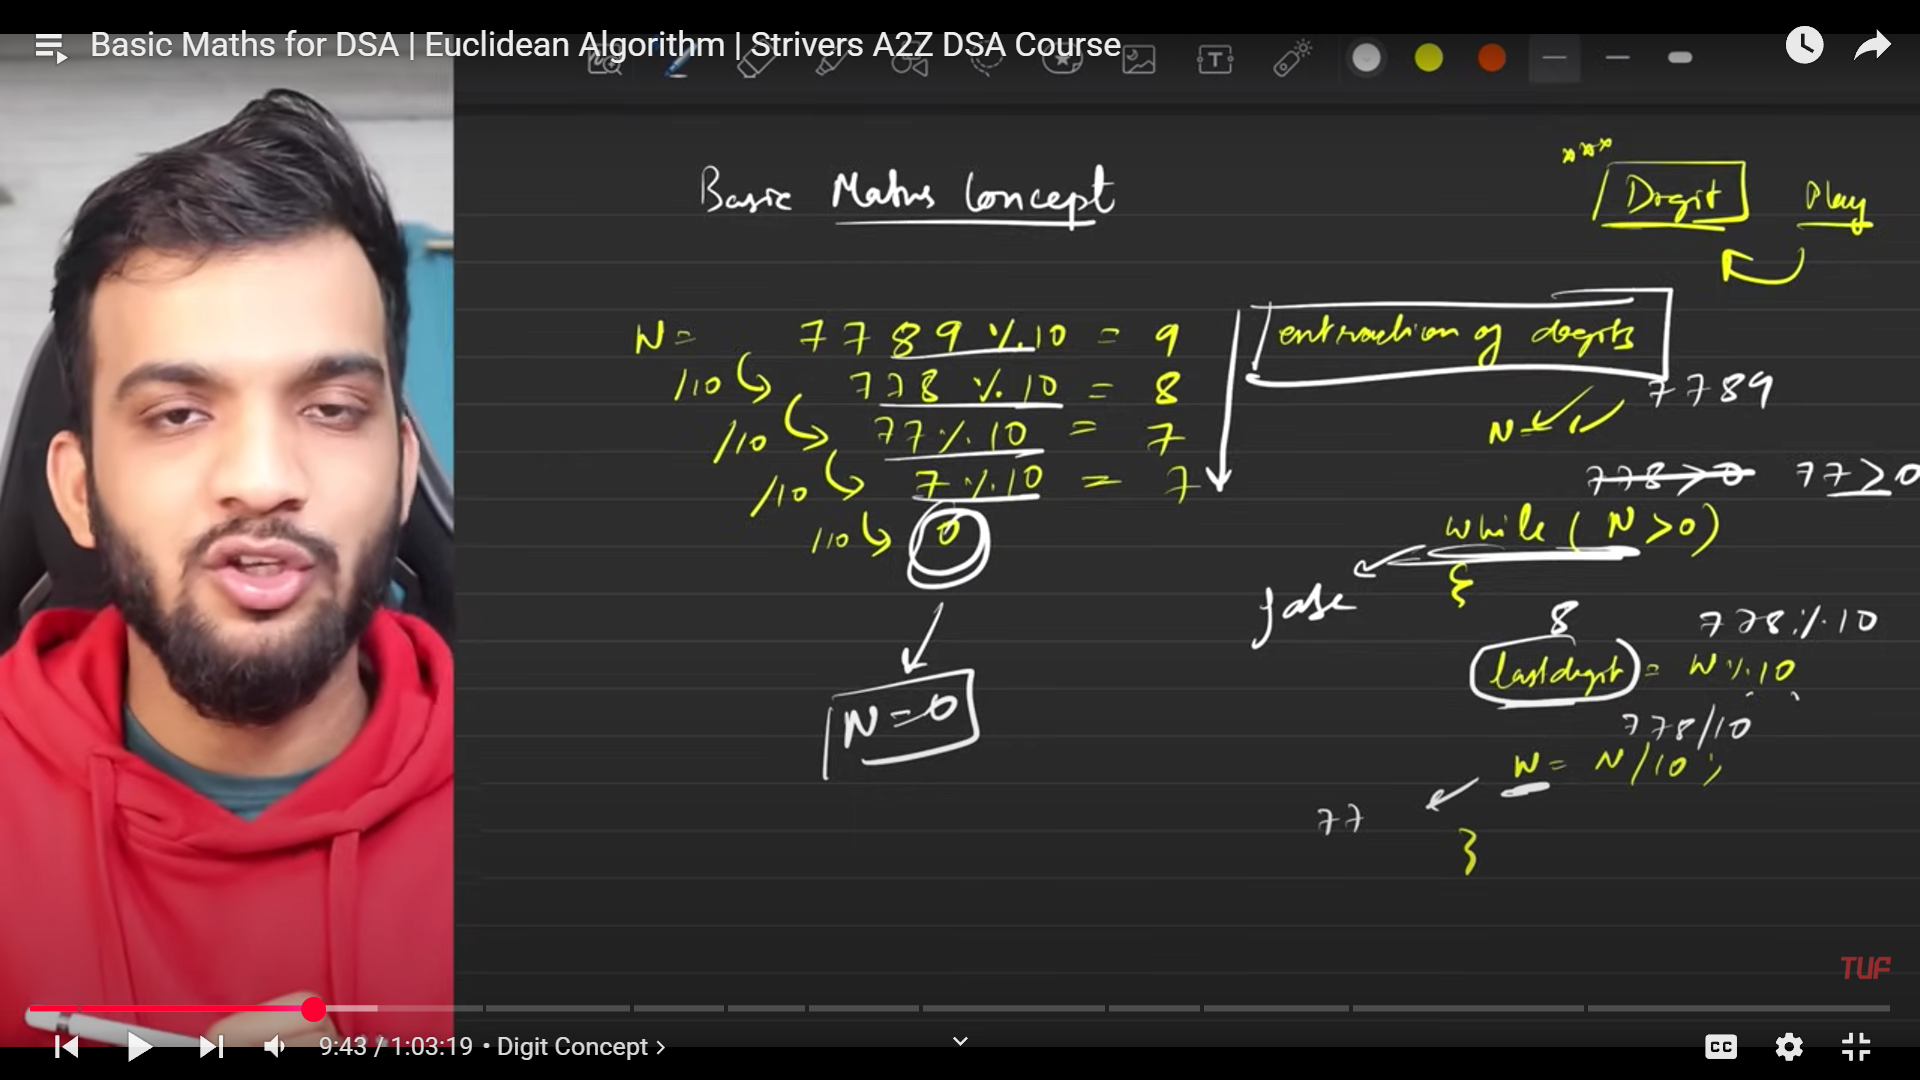 Basic Maths for DSA | Euclidean Algorithm | Strivers A2Z DSA Course
Basic Maths Concept
*** Digit Play
N = 7789 % 10 = 9
/10 778 % 10 = 8
/10 77 % 10 = 7
/10 7 % 10 = 7
/10 0
N = 0
extraction of digits
7789
N =
778 > 0 77 > 0
while ( N > 0 )
false {
8 778 % 10
lastdigit = N % 10
778/10
N = N/10;
77
}
TUF
9:43 / 1:03:19 • Digit Concept >
CC